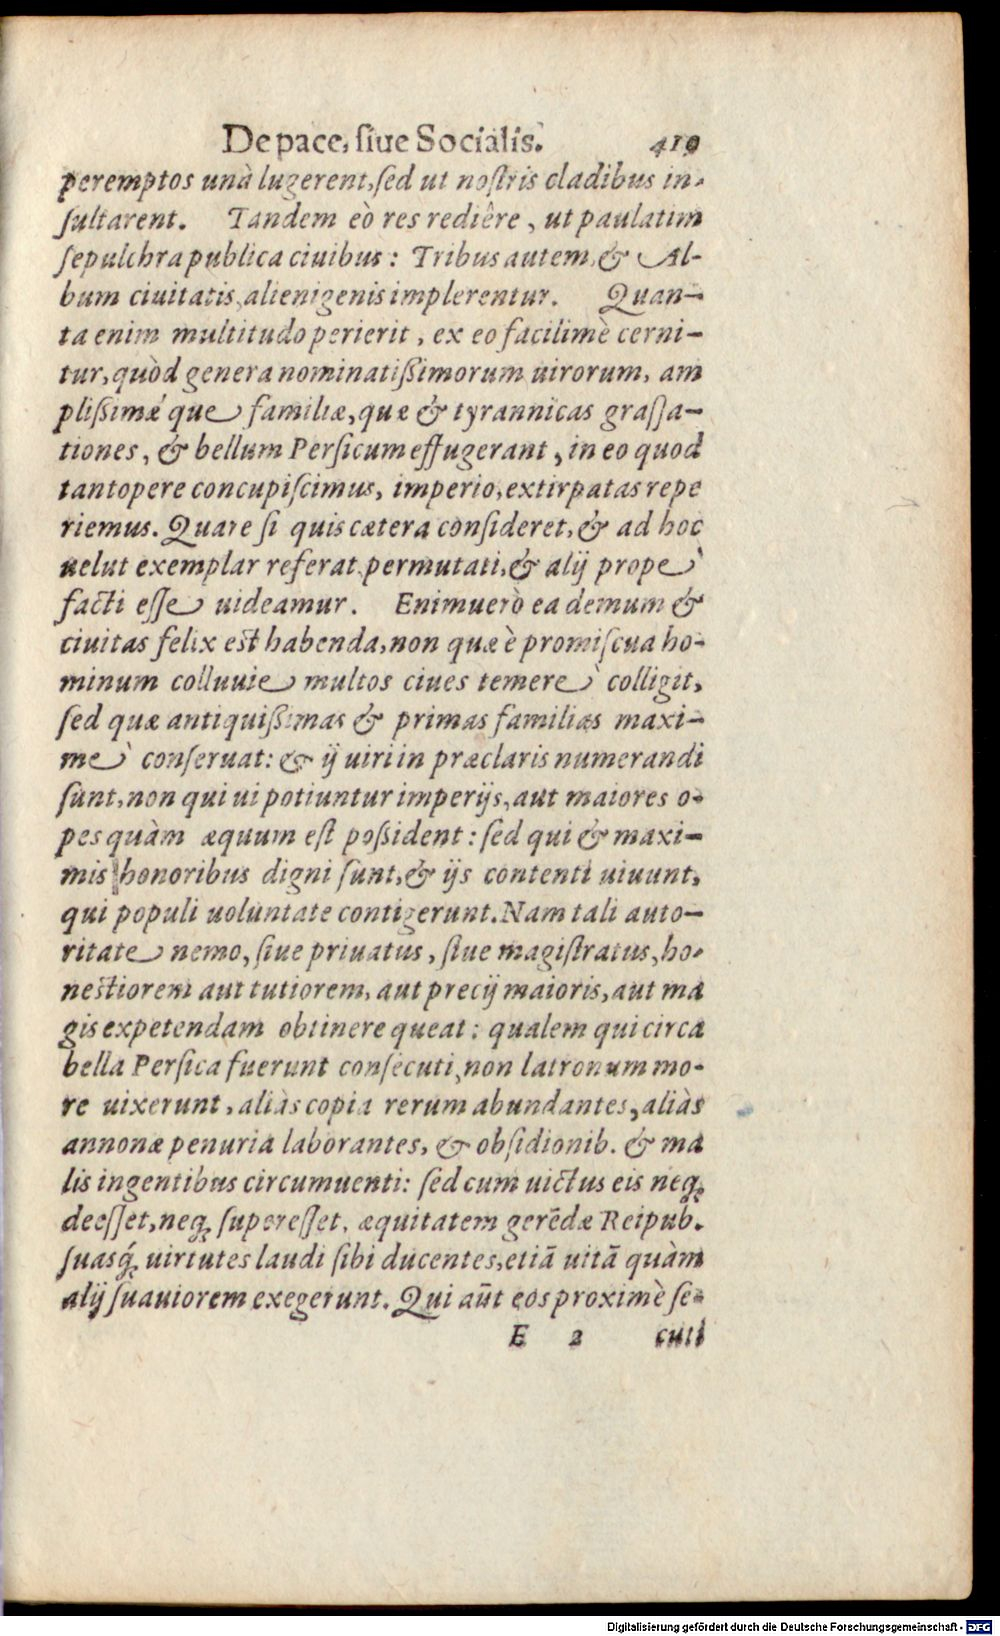 De pace, ſiue Socialis. 419
peremptos unà lugerent, ſed ut noſtris cladibus in-
ſultarent. Tandem eò res rediêre, ut paulatim
ſepulchra publica ciuibus: Tribus autem, & Al-
bum ciuitatis, alienigenis implerentur. Quan-
ta enim multitudo perierit, ex eo facilimè cerni-
tur, quòd genera nominatißimorum uirorum, am
plißimǽ que familiæ, quæ & tyrannicas graſſa-
tiones, & bellum Perſicum effugerant, in eo quod
tantopere concupiſcimus, imperio, extirpatas repe
riemus. Quare ſi quis cætera conſideret, & ad hoc
uelut exemplar referat, permutati, & alij propè
facti eſſe uideamur. Enimuerò ea demum &
ciuitas felix est habenda, non quæ è promiſcua ho-
minum colluuie multos ciues temerè colligit,
ſed quæ antiquißimas & primas familias maxi-
mè conſeruat: & ij uiri in præclaris numerandi
ſunt, non qui ui potiuntur imperijs, aut maiores o-
pes quàm æquum eſt poßident: ſed qui & maxi-
mis honoribus digni ſunt, & ijs contenti uiuunt,
qui populi uoluntate contigerunt. Nam tali auto-
ritate nemo, ſiue priuatus, ſiue magiſtratus, ho-
nestiorem aut tutiorem, aut precij maioris, aut ma
gis expetendam obtinere queat: qualem qui circa
bella Perſica fuerunt conſecuti, non latronum mo-
re uixerunt, aliàs copia rerum abundantes, aliàs
annonæ penuria laborantes, & obſidionib. & ma
lis ingentibus circumuenti: ſed cum uictus eis neq;
deeſſet, neq; ſupereſſet, æquitatem gerẽdæ Reipub.
ſuasq́; uirtutes laudi ſibi ducentes, etiã uitã quàm
alij ſuauiorem exegerunt. Qui aũt eos proximè ſe-
E 2 cuti
Digitalisierung gefördert durch die Deutsche Forschungsgemeinschaft - DFG